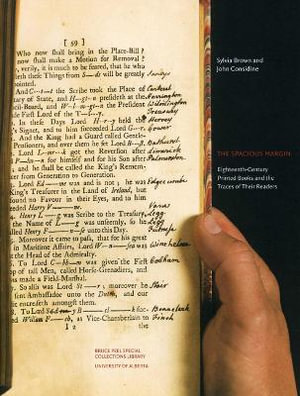 [ 59 ]
Who now shall bring in the Place-Bill?
now shall make a Motion for Removal?
verily, it is much to be feared, that he who
these Things from S—ds will be greatly Sandys
And C—t the Scribe took the Place of Carteret
tary of State, and H—gt—n presideth at the Harrington
cil-Board, and W—lm—gt—n the President Wilmington
First Lord of the T—y. Treasury
In these Days Lord H—y held the Hervey
Signet, and to him succeeded Lord G—r. Gower
And the King had a Guard called Gentle-
Pensioners, and over them he set Lord B—t. Bathurst
Lord L—k got the Reversion after Limerick
for himself and for his Son after Palmerston
and he shall be called the King's Remem-
from Generation to Generation.
Lord Ed—me was and is not; he was Edgecumbe
Treasurer in the Land of Ireland, but
no Favour in their Eyes, and to him
ceeded Harry V—e. Vane
Henry L—g was Scribe to the Treasury, Legg
the Land was unseemly, so he
Henry F—e unto this day. Furnese
Moreover it came to pass, that for his great
in Maritime Affairs, Lord Win—sea was Winchelsea
at the Head of the Admiralty.
To Lord C—bm was given the First Cobham
of tall Men, called Horse-Grenadiers, and
was made a Field-Marshal.
So also was Lord St—r; moreover he Stair
sent Ambassador unto the Dutch, and our
entreateth amongst them.
William F—ch, as Vice-Chamberlain to Finch
I 2 the
Sylvia Brown and
John Considine
THE SPACIOUS MARGIN
Eighteenth-Century
Printed Books and the
Traces of Their Readers
BRUCE PEEL SPECIAL
COLLECTIONS LIBRARY
UNIVERSITY OF ALBERTA